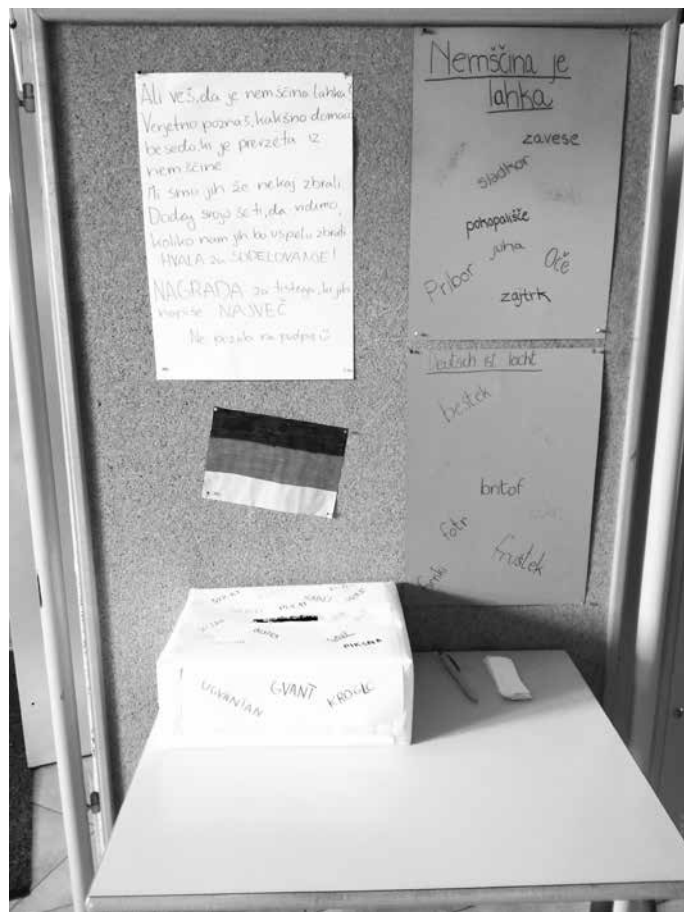 Ali veš, da je nemščina lahka?
Verjetno poznaš kakšno domačo
besedo, ki je prevzeta iz
nemščine.
Mi smo jih že nekaj zbrali.
Dodaj svojo še ti, da vidimo,
koliko nam jih bo uspelo zbrati.
HVALA za SODELOVANJE!
NAGRADA za tistega, ki jih
napiše NAJVEČ
Ne pozabi na podpis
Nemščina je
lahka
zavese
sladkor
pokopališče
juha
Oče
Pribor
zajtrk
Deutsch ist
bestek
britof
fotr
frustek
PIKSNA
GVANT
KROGLC